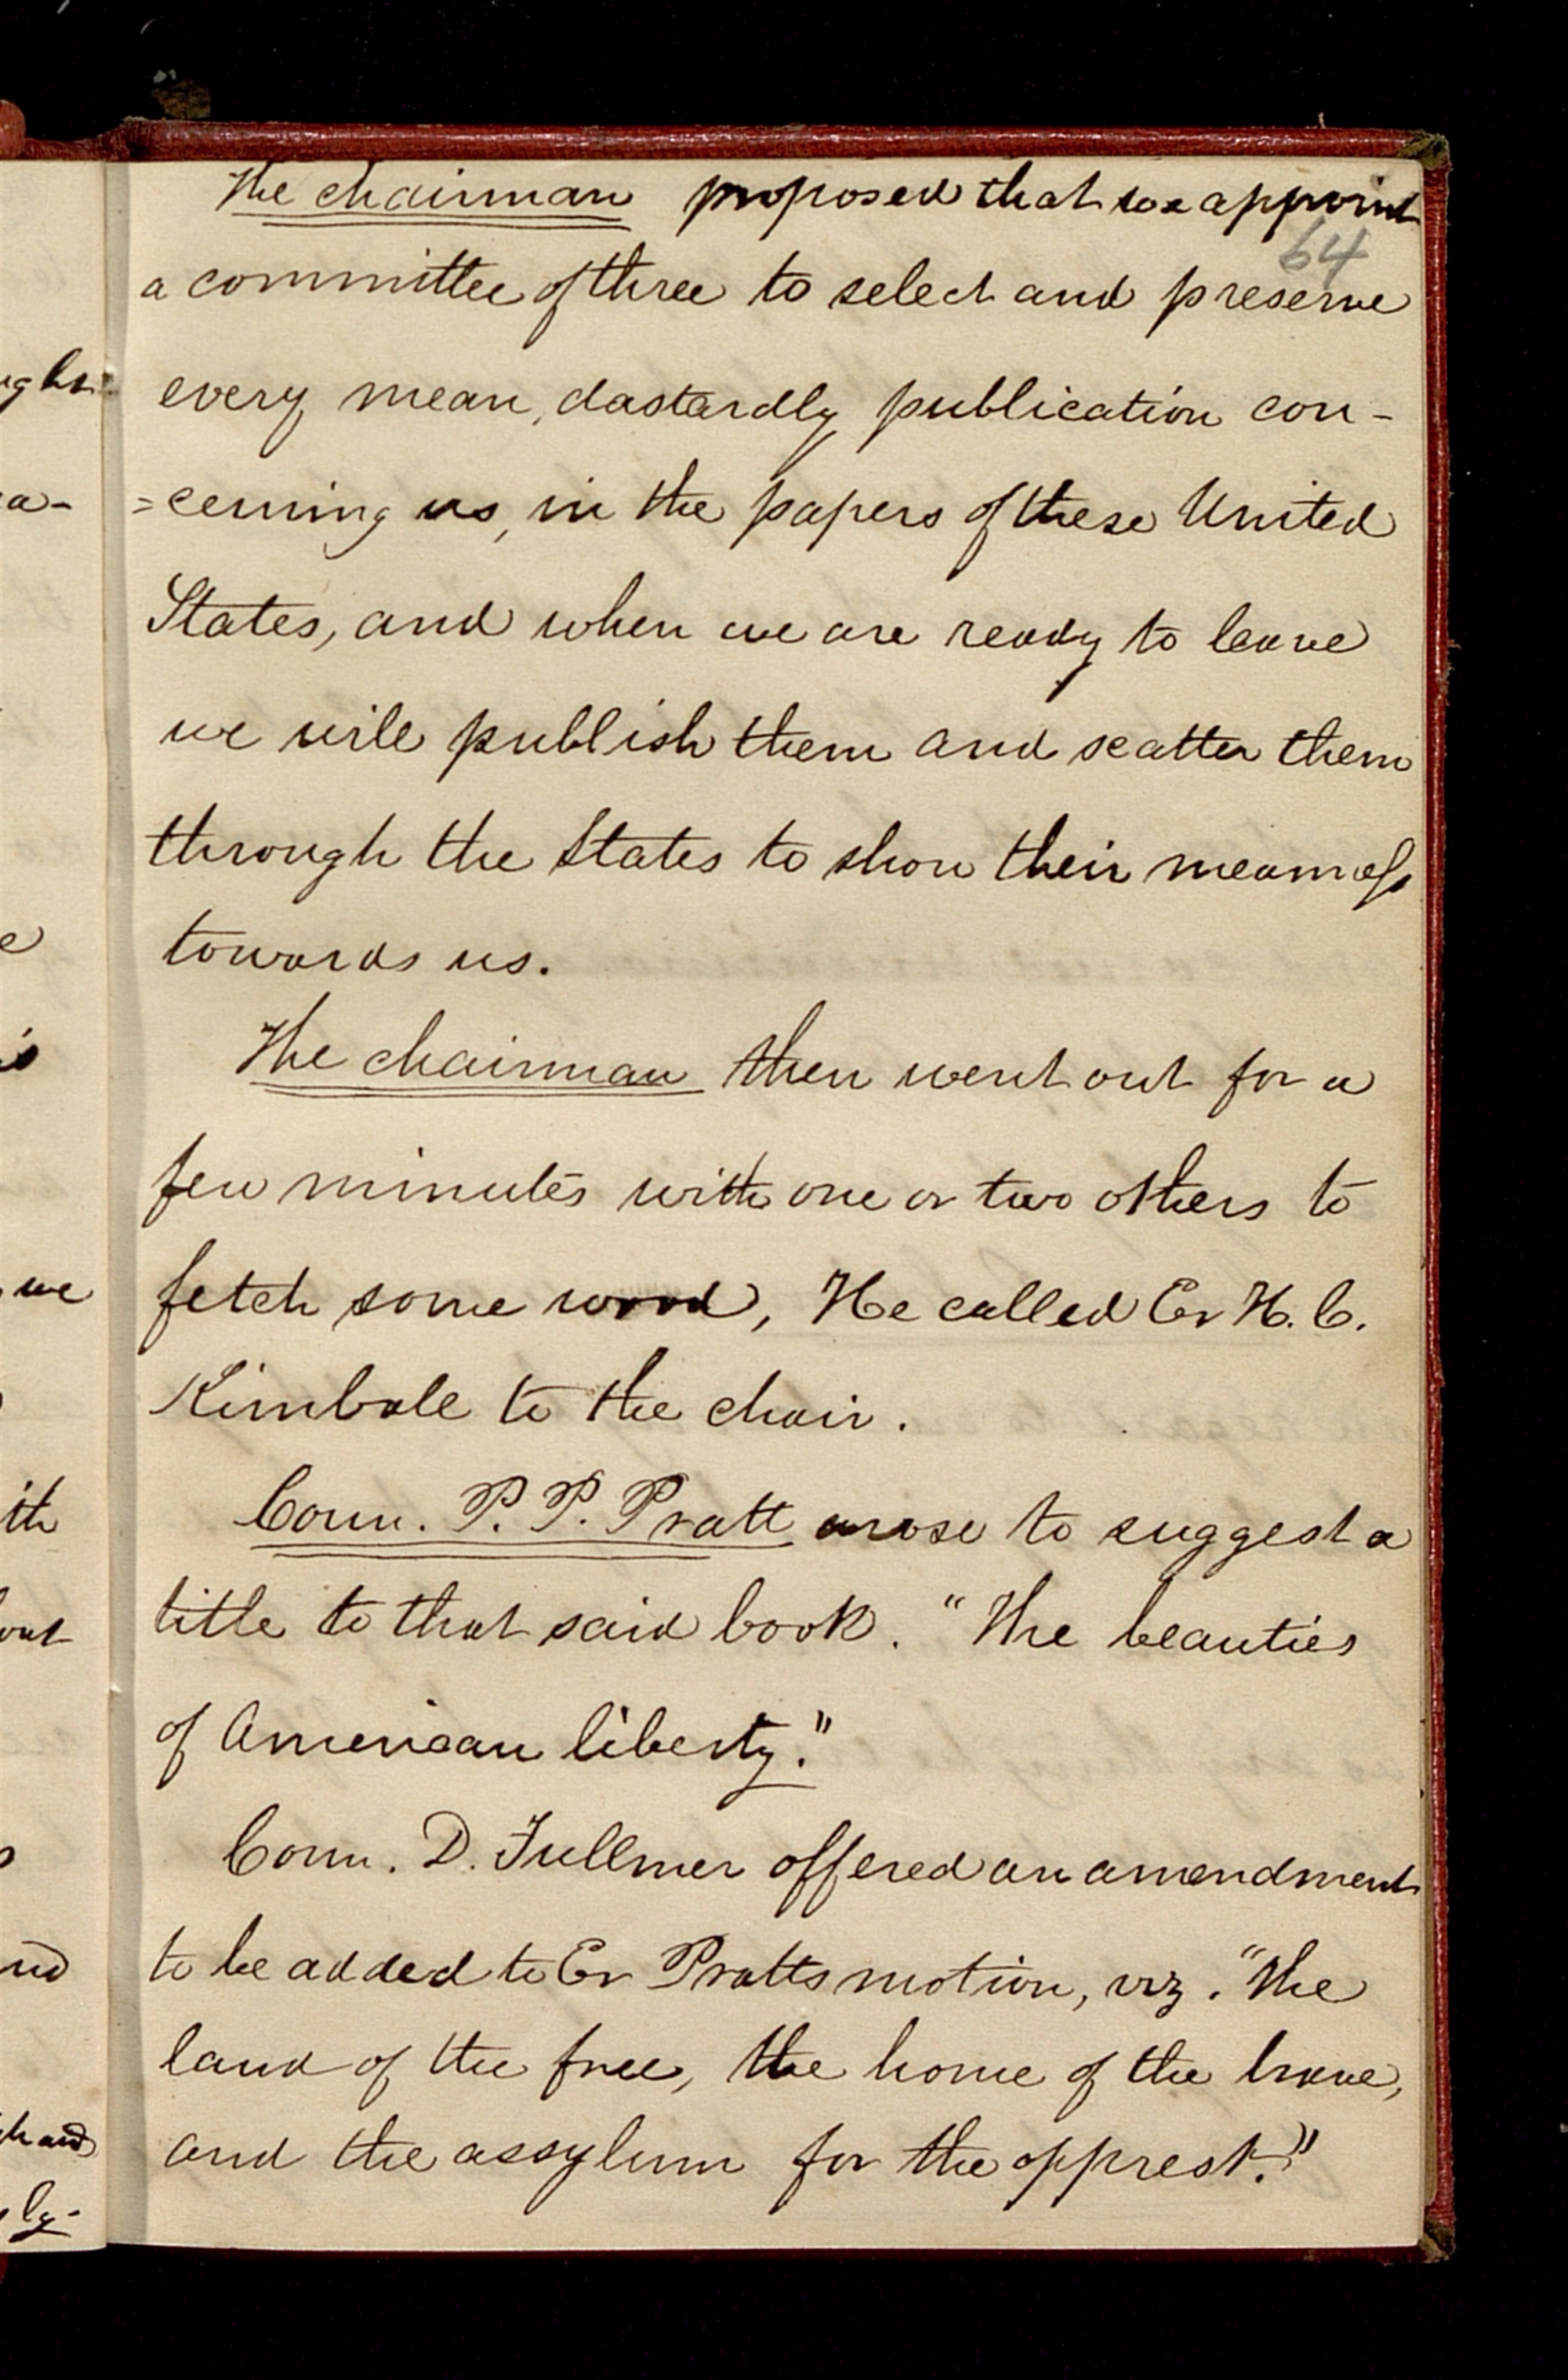 The chairman proposed that we appoint
64
a committee of three to select and preserve
every mean, dastardly publication con-
=cerning us, in the papers of these United
States, and when we are ready to leave
we will publish them and scatter them
through the States to show their meanness
towards us.
The chairman then went out for a
few minutes with one or two others to
fetch some wood, He called Er H. C.
Kimball to the chair.
Coun. P. P. Pratt arose to suggest a
title to that said book. "The beauties
of American liberty."
Coun. D. Fullmer offered an amendment
to be added to Er Pratts motion, viz. "the
land of the free, the home of the brave,
and the assylum for the opprest."